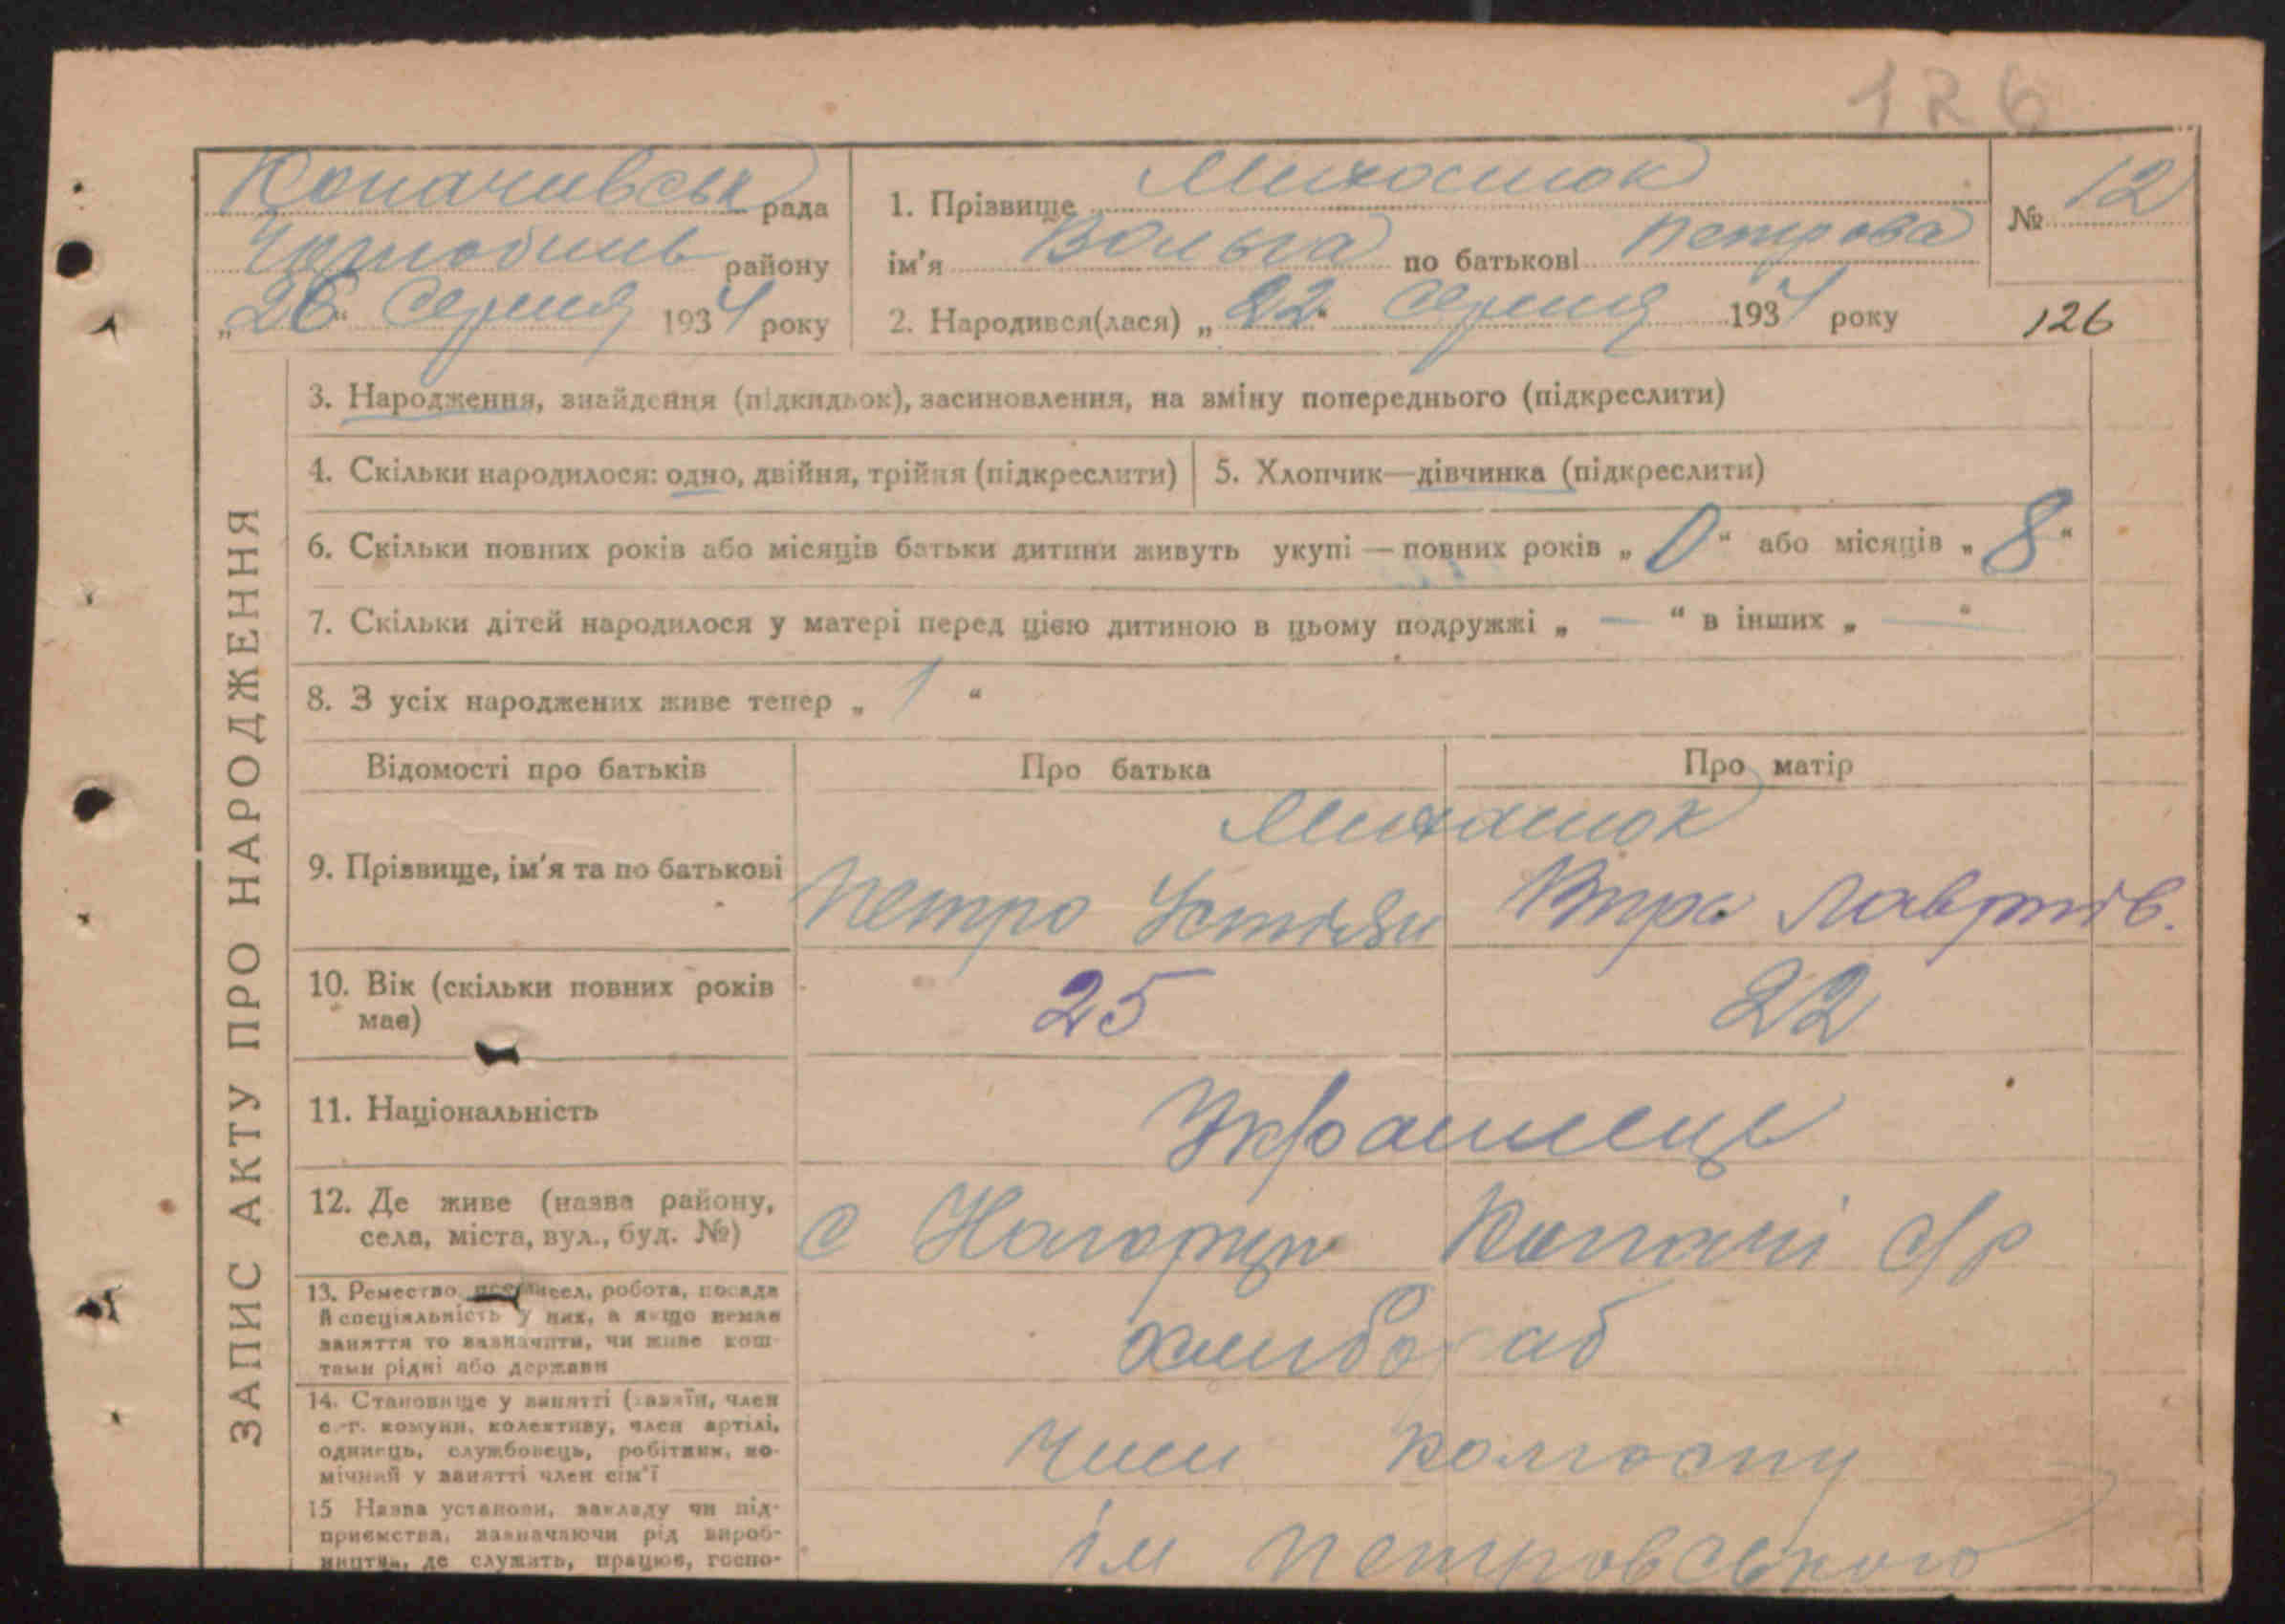 126
Копачивськ рада
Чорнобиль району
„26“ Серпня 1934 року
1. Прізвище
ім'я Вольга по батькові Петрова
2. Народився(лася) „22“ Серпня 1934 року
№ 12
126
ЗАПИС АКТУ ПРО НАРОДЖЕННЯ
3. Народження, знайдення (підкидьок), засиновлення, на зміну попереднього (підкреслити)
4. Скільки народилося: одно, двійня, трійня (підкреслити)
5. Хлопчик—дівчинка (підкреслити)
6. Скільки повних років або місяців батьки дитини живуть укупі — повних років „0“ або місяців „8“
7. Скільки дітей народилося у матері перед цією дитиною в цьому подружжі „ — “ в інших „ — “
8. З усіх народжених живе тепер „ 1 “
Відомості про батьків
Про батька
Про матір
9. Прізвище, ім'я та по батькові
Петро
10. Вік (скільки повних років
має)
25
22
11. Національність
Українець
12. Де живе (назва району,
села, міста, вул., буд. №)
с Нагорци Копачі с/р
13. Ремество, промисел, робота, посада
й спеціяльність у них, а якщо немає
заняття то зазначити, чи живе кош-
тами рідні або держави
хлибораб
14. Становище у занятті (хазяїн, член
с.-г. комуни, колективу, член артілі,
одинець, службовець, робітник, по-
мічний у занятті член сім'ї
Член колгоспу
15 Назва установи, закладу чи під-
приємства, зазначаючи рід вироб-
ництва, де служить, працює, госпо-
ім Петровського